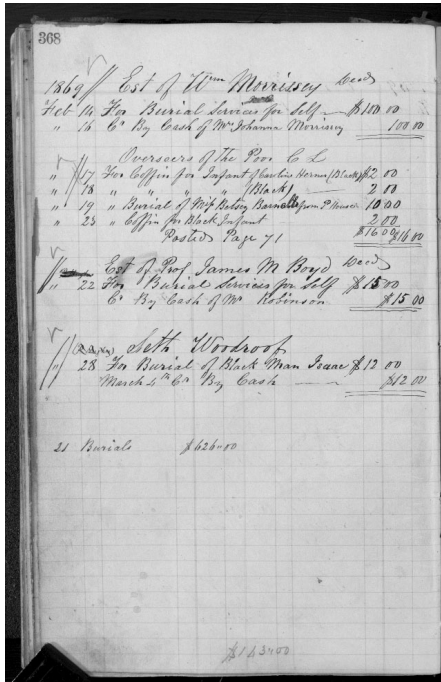 368
1869 Est of Wm Morrissey Decd
Feb 14 For Burial Services for Self $100.00
" 16 Cr By Cash of Mrs Johanna Morrissey 100.00
Overseers of the Poor C L
" 17 For Coffin for Infant of Horner (Black) $2.00
" 18 " " " " (Black) 2.00
" 19 " Burial of Miss Betsey from P House 10.00
" 25 " Coffin for Black Infant 2.00
Posted Page 71 $16.00 $16.00
Est of Prof James M Boyd Decd
" 22 For Burial Services for Self $15.00
Cr By Cash of Mr Robinson $15.00
Seth Woodroof
" 28 For Burial of Black Man Isaac $12.00
March 4th Cr By Cash $12.00
21 Burials $626.00